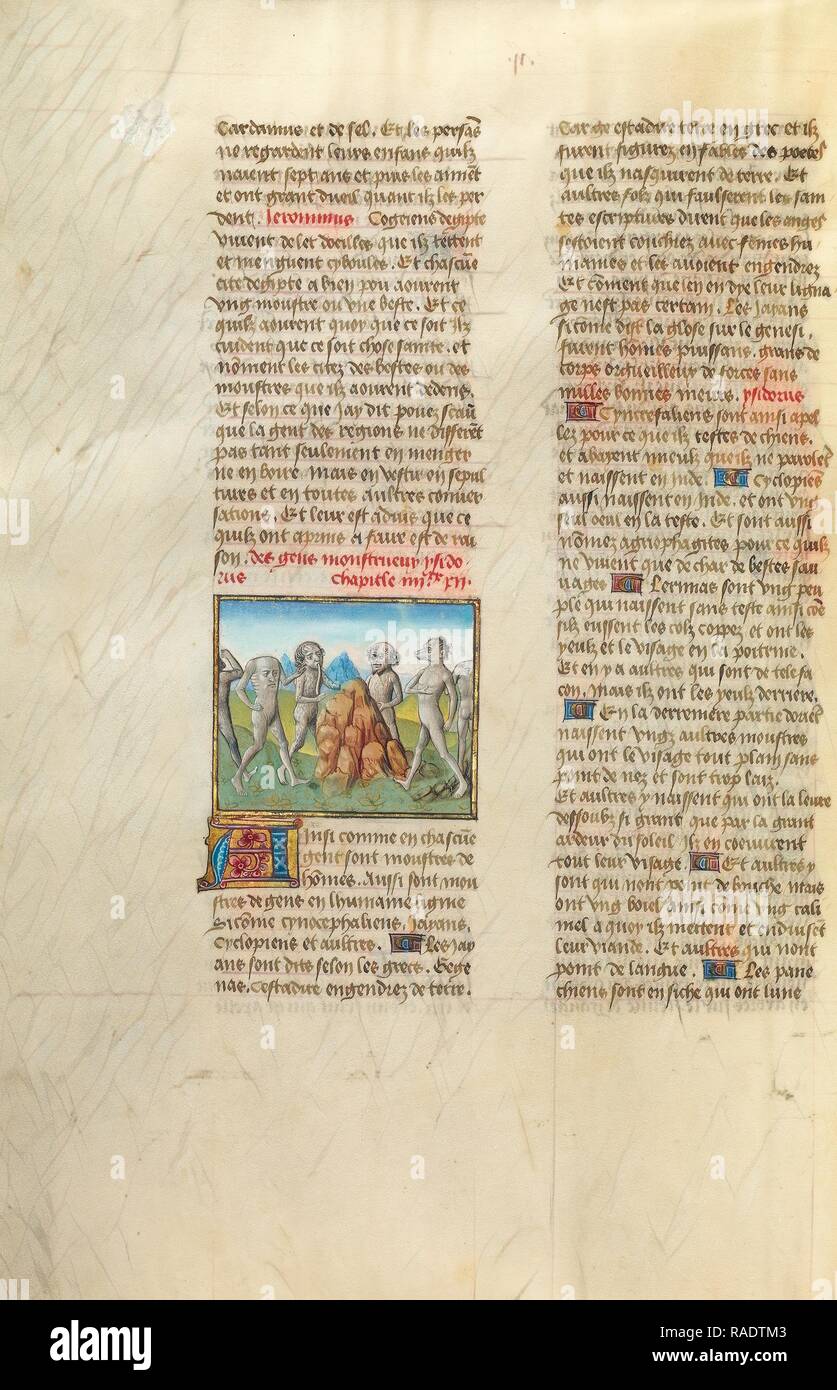 .ii.
Cardamus et de sel. Et les persãs
ne regardent leurs enfans quilz
naient sept ans et puis les aimẽt
et ont grant dueil quant ilz les per
dent. Jeronimus Cogriens degipte
vivent de let doeilles que ilz tettent
et menguent cyboules. Et chascũe
cite degipte a bien pou aourent
ung monstre ou une beste. Et ce
quilz aourent quoy que ce soit ilz
cuident que ce soit chose sainte. et
nõment les citez des bestes ou des
monstres que ilz aourent dedens.
Et selon ce que jay dit pouez scau
que la gent des regions ne differẽt
pas tant seulement en menger
ne en boire mais en vestir en sepul
tures et en toutes aultres conver
sations. Et leur est advis que ce
quilz ont apris a faire est de rai
son. des gens monstrueux ysido-
rus Chapitle iiij.xx xij.
Ainsi comme en chascũe
gent sont monstres de
hõmes. Aussi sont mon
stres de gens en lhumaine ligniee
Si cõme cynocephaliens, jayans,
Cyclopiens et aultres. Les jay
ans sont dits selon les grecs. Gege
nas. Cestadire engendrez de terre.
Car ge estadire terre en grec et ilz
furent figurez en fables des poetes
que ilz nasquirent de terre. Et
aultres folz qui faulserent les sain
tes escriptures dirent que les anges
sestoient couchiez avec fẽmes hu
maines et les avoient engendrez
Et cõment que len en dye leur ligna
ge nest pas certain. Les jayans
si cõme dist la glose sur le genesi.
furent hõmes puissans. grans de
corps orgueilleux de forces sans
nulles bonnes meurs. ysidorus
Cyncefaliens sont ainsi apel
lez pour ce que ilz testes de chiens.
et abayent mieulx que ilz ne parolẽt
et naissent en inde. Cyclopiẽs
aussi naissent en inde. et ont ung
seul oeul en la teste. Et sont aussi
nõmez agriophagites pour ce quilz
ne vivent que de char de bestes sau
vages Lermas sont ung peu
ple qui naissent sans teste ainsi cõe
silz eussent les colz coppez et ont les
yeulx et le visage en la poitrine.
Et en y a aultres qui sont de tele fa
con. mais ilz ont les yeulx derriere.
En la derreniere partie dorien
naissent ungz aultres monstres
qui ont le visage tout plain sans
point de nez et sont trop laiz.
Et aultres y naissent qui ont la levre
dessoubz si grant que par la grant
ardeur du soleil ilz en coeuvrent
tout leur visage. Et aultres y
sont qui nont point de bouche mais
ont ung boiel ainsi cõme ung cali
mel a quoy ilz mettent et enduisent
leur viande. Et aultres qui nont
point de langue. Les pane
chiens sont en siche qui ont lune
alamy
Image ID: RADTM3
www.alamy.com